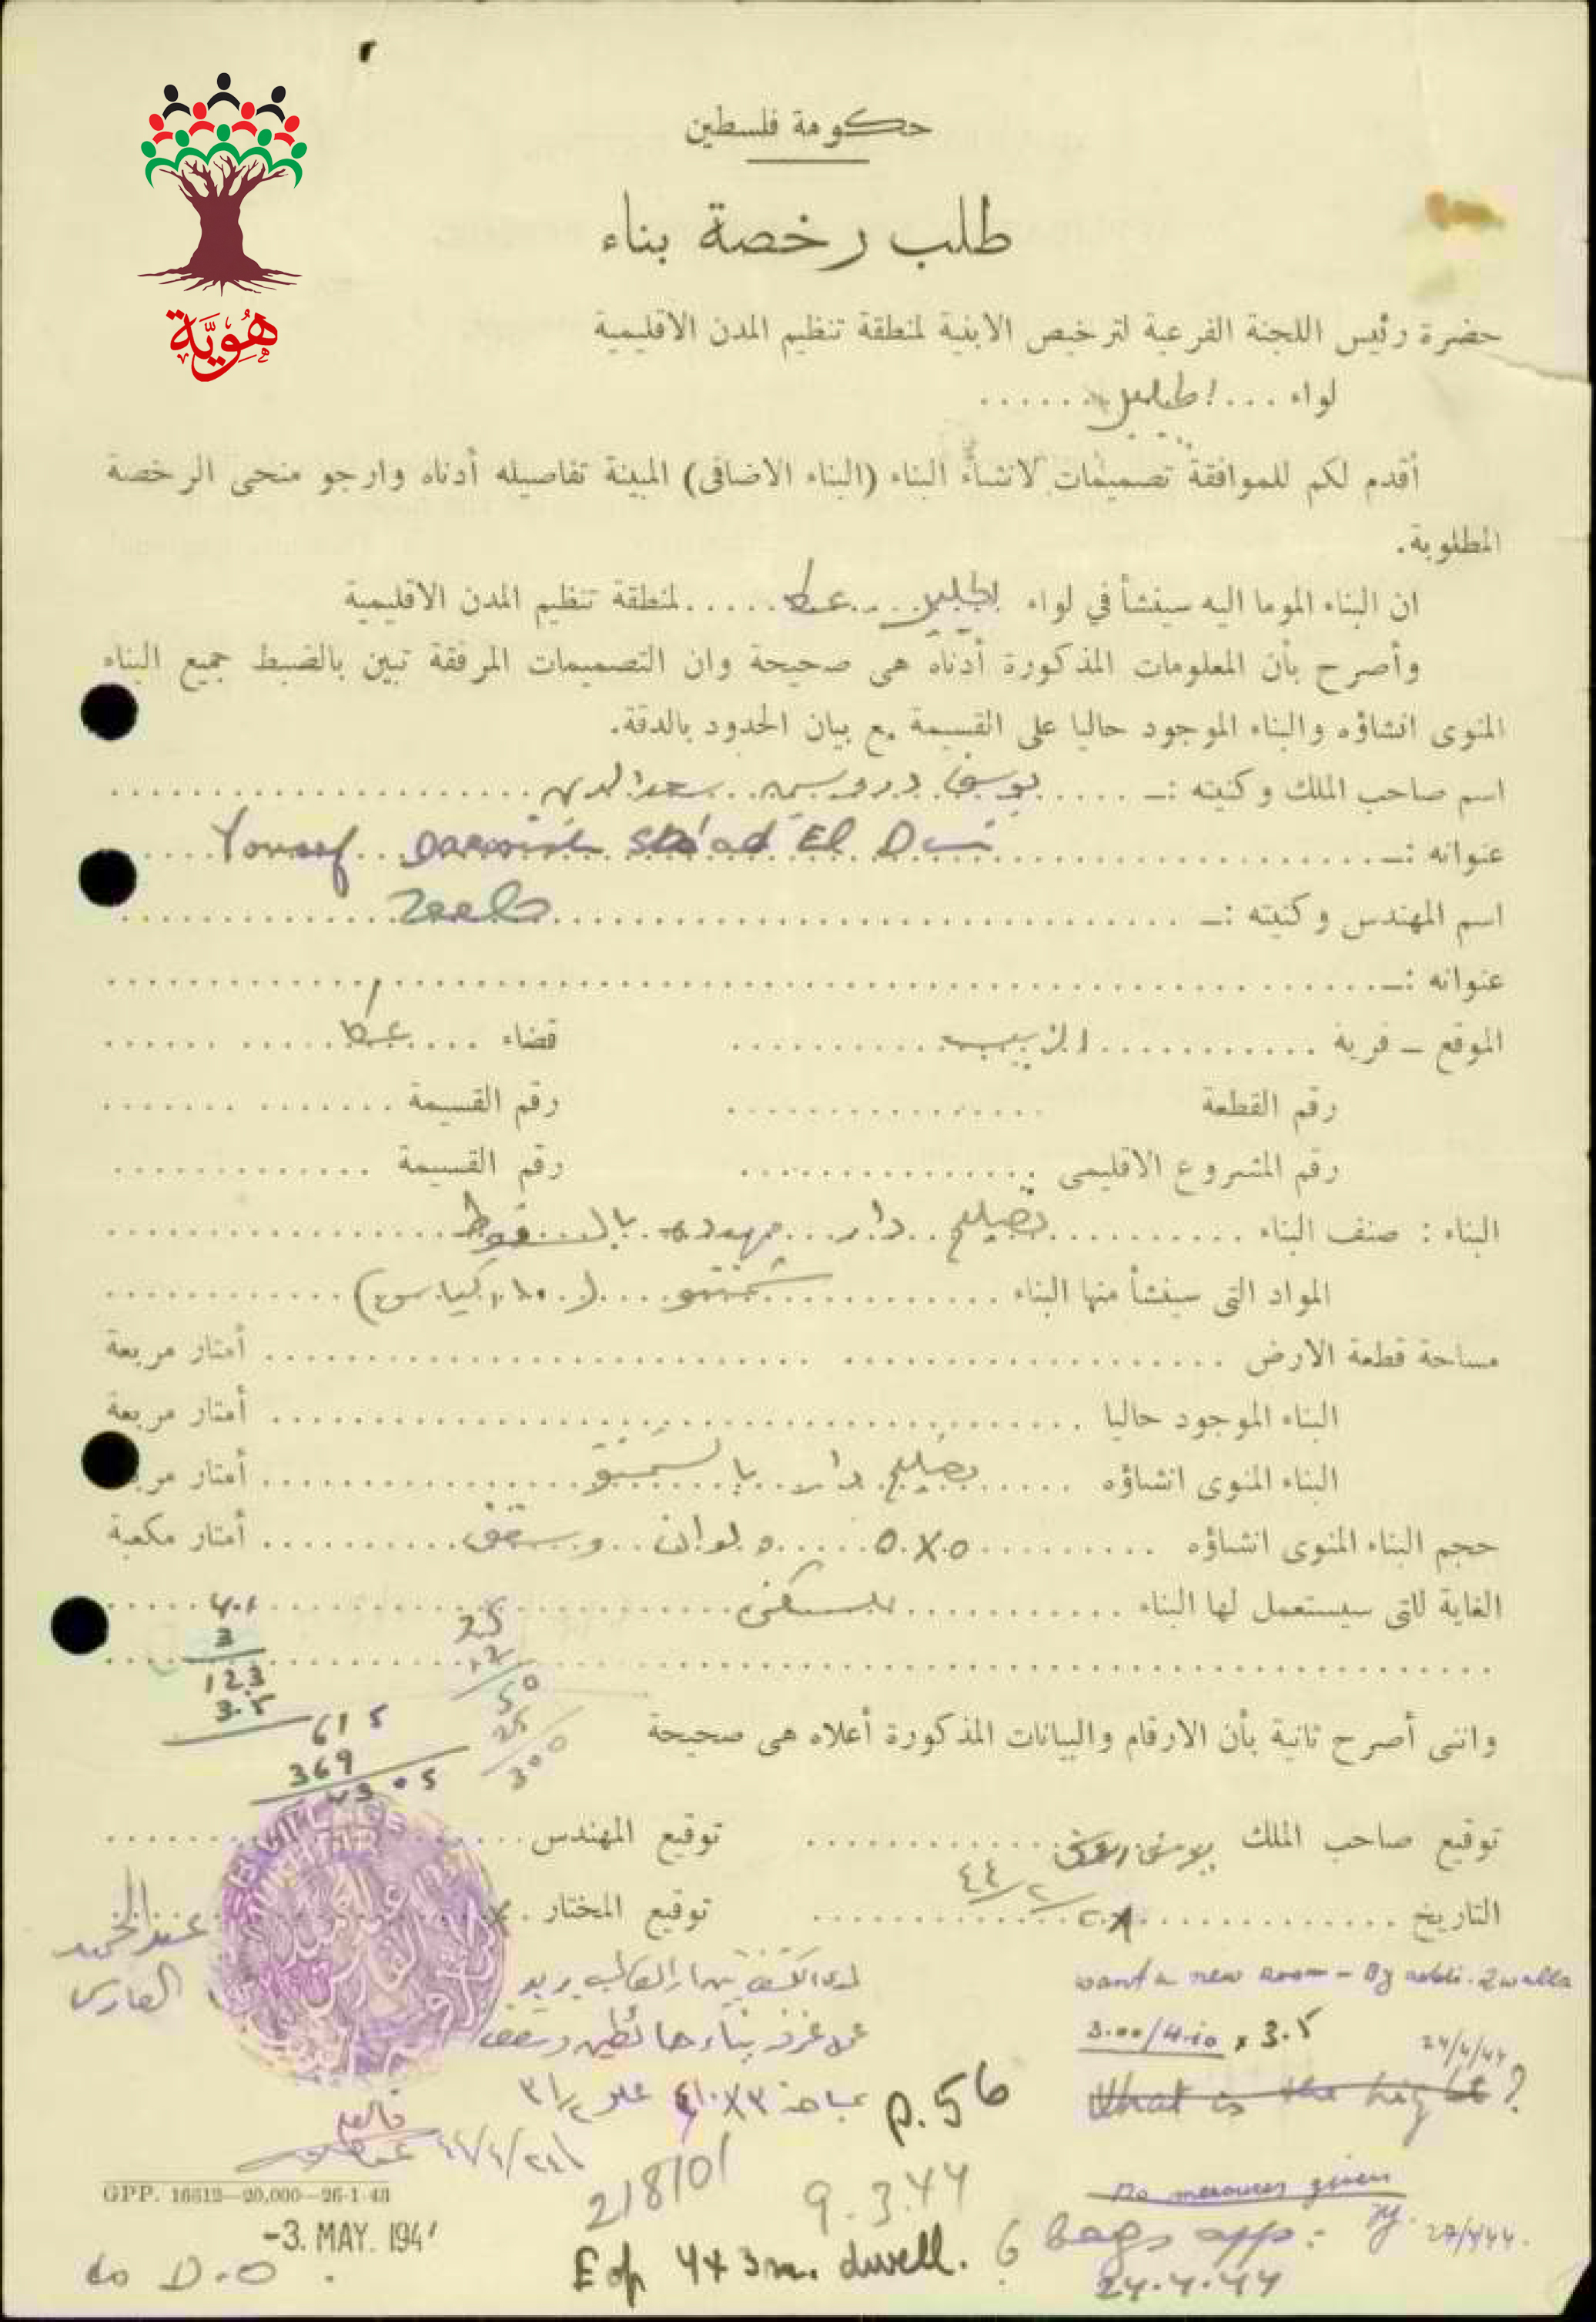 حكومة فلسطين
طلب رخصة بناء
هُوِيَّة
حضرة رئيس اللجنة الفرعية لترخيص الابنية لمنطقة تنظيم المدن الاقليمية
لواء ... الجليل ......
أقدم لكم للموافقة تصميمات لانشاء البناء (البناء الاضافى) المبينة تفاصيله أدناه وارجو منحى الرخصة
المطلوبة.
ان البناء الموما اليه سينشأ في لواء الجليل .... عكا ..... لمنطقة تنظيم المدن الاقليمية
وأصرح بأن المعلومات المذكورة أدناه هى صحيحة وان التصميمات المرفقة تبين بالضبط جميع البناء
المنوى انشاؤه والبناء الموجود حاليا على القسيمة مع بيان الحدود بالدقة.
اسم صاحب الملك وكنيته :ـ ..... يوسف درويش سعد الدين
عنوانه :ـ Yousef Darwish Sa'ad El Din
اسم المهندس وكنيته :ـ Zeeb
عنوانه :ـ
الموقع ـ قرية ........ الزيب ........ قضاء .... عكا ....
رقم القطعة ........ رقم القسيمة ........
رقم المشروع الاقليمى ........ رقم القسيمة ........
البناء : صنف البناء ........ تصليح دار مهدده بالسقوط
المواد التى سينشأ منها البناء ........ شمنتو (١٠ كياس)
مساحة قطعة الارض ........ أمتار مربعة
البناء الموجود حاليا ........ أمتار مربعة
البناء المنوى انشاؤه ...... تصليح دار بالشمنتو ........ أمتار مر
حجم البناء المنوى انشاؤه ........ ٥×٥ ........ وسقف ........ أمتار مكعبة
الغاية للتى سيستعمل لها البناء ........ للسكن
4.1
3
12.3
3.5
615
369
43.05
25
12
50
25
300
واننى أصرح ثانية بأن الارقام والبيانات المذكورة أعلاه هى صحيحة
توقيع صاحب الملك ........ توقيع المهندس ........
التاريخ ........ ٢٨/٢/٤٤ توقيع المختار ........
want a new room - By addi. 2 walls
3.00/4.10 x 3.5
24/4/44
What is the hight?
لدى الكشف الطالب يريد
عمل غرفة بناء حائطين وسقف
p. 56
٢٤/٤/٤٤
No mesures given
GPP. 16612—20,000—26-1-43
-3. MAY. 194
to D.O.
218101
9.3.44
4x3m. dwell.
6 bags app:
24.4.44